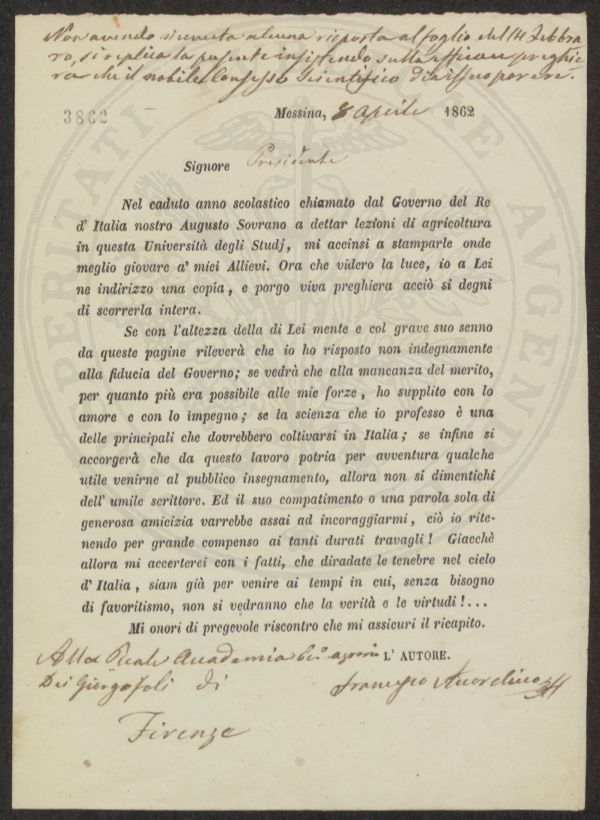 Non avendo ricevuta alcuna risposta al foglio del 14 Febbra
ro, si replica la presente insistendo sulla efficace preghie
ra che il nobile Consesso Scientifico dia il suo parere.
3862
Messina, 8 Aprile 1862
Signore Presidente
Nel caduto anno scolastico chiamato dal Governo del Re
d' Italia nostro Augusto Sovrano a dettar lezioni di agricoltura
in questa Università degli Studj, mi accinsi a stamparle onde
meglio giovare a' miei Allievi. Ora che videro la luce, io a Lei
ne indirizzo una copia, e porgo viva preghiera acciò si degni
di scorrerla intera.
Se con l'altezza della di Lei mente e col grave suo senno
da queste pagine rileverà che io ho risposto non indegnamente
alla fiducia del Governo; se vedrà che alla mancanza del merito,
per quanto più era possibile alle mie forze, ho supplito con lo
amore e con lo impegno; se la scienza che io professo è una
delle principali che dovrebbero coltivarsi in Italia; se infine si
accorgerà che da questo lavoro potria per avventura qualche
utile venirne al pubblico insegnamento, allora non si dimentichi
dell' umile scrittore. Ed il suo compatimento o una parola sola di
generosa amicizia varrebbe assai ad incoraggiarmi, ciò io rite-
nendo per grande compenso ai tanti durati travagli! Giacchè
allora mi accerterei con i fatti, che diradate le tenebre nel cielo
d' Italia, siam già per venire ai tempi in cui, senza bisogno
di favoritismo, non si vedranno che la verità e le virtudi!...
Mi onori di pregevole riscontro che mi assicuri il ricapito.
Alla Reale Accademia agraria L' AUTORE.
Dei Giorgofoli di Francesco
Firenze